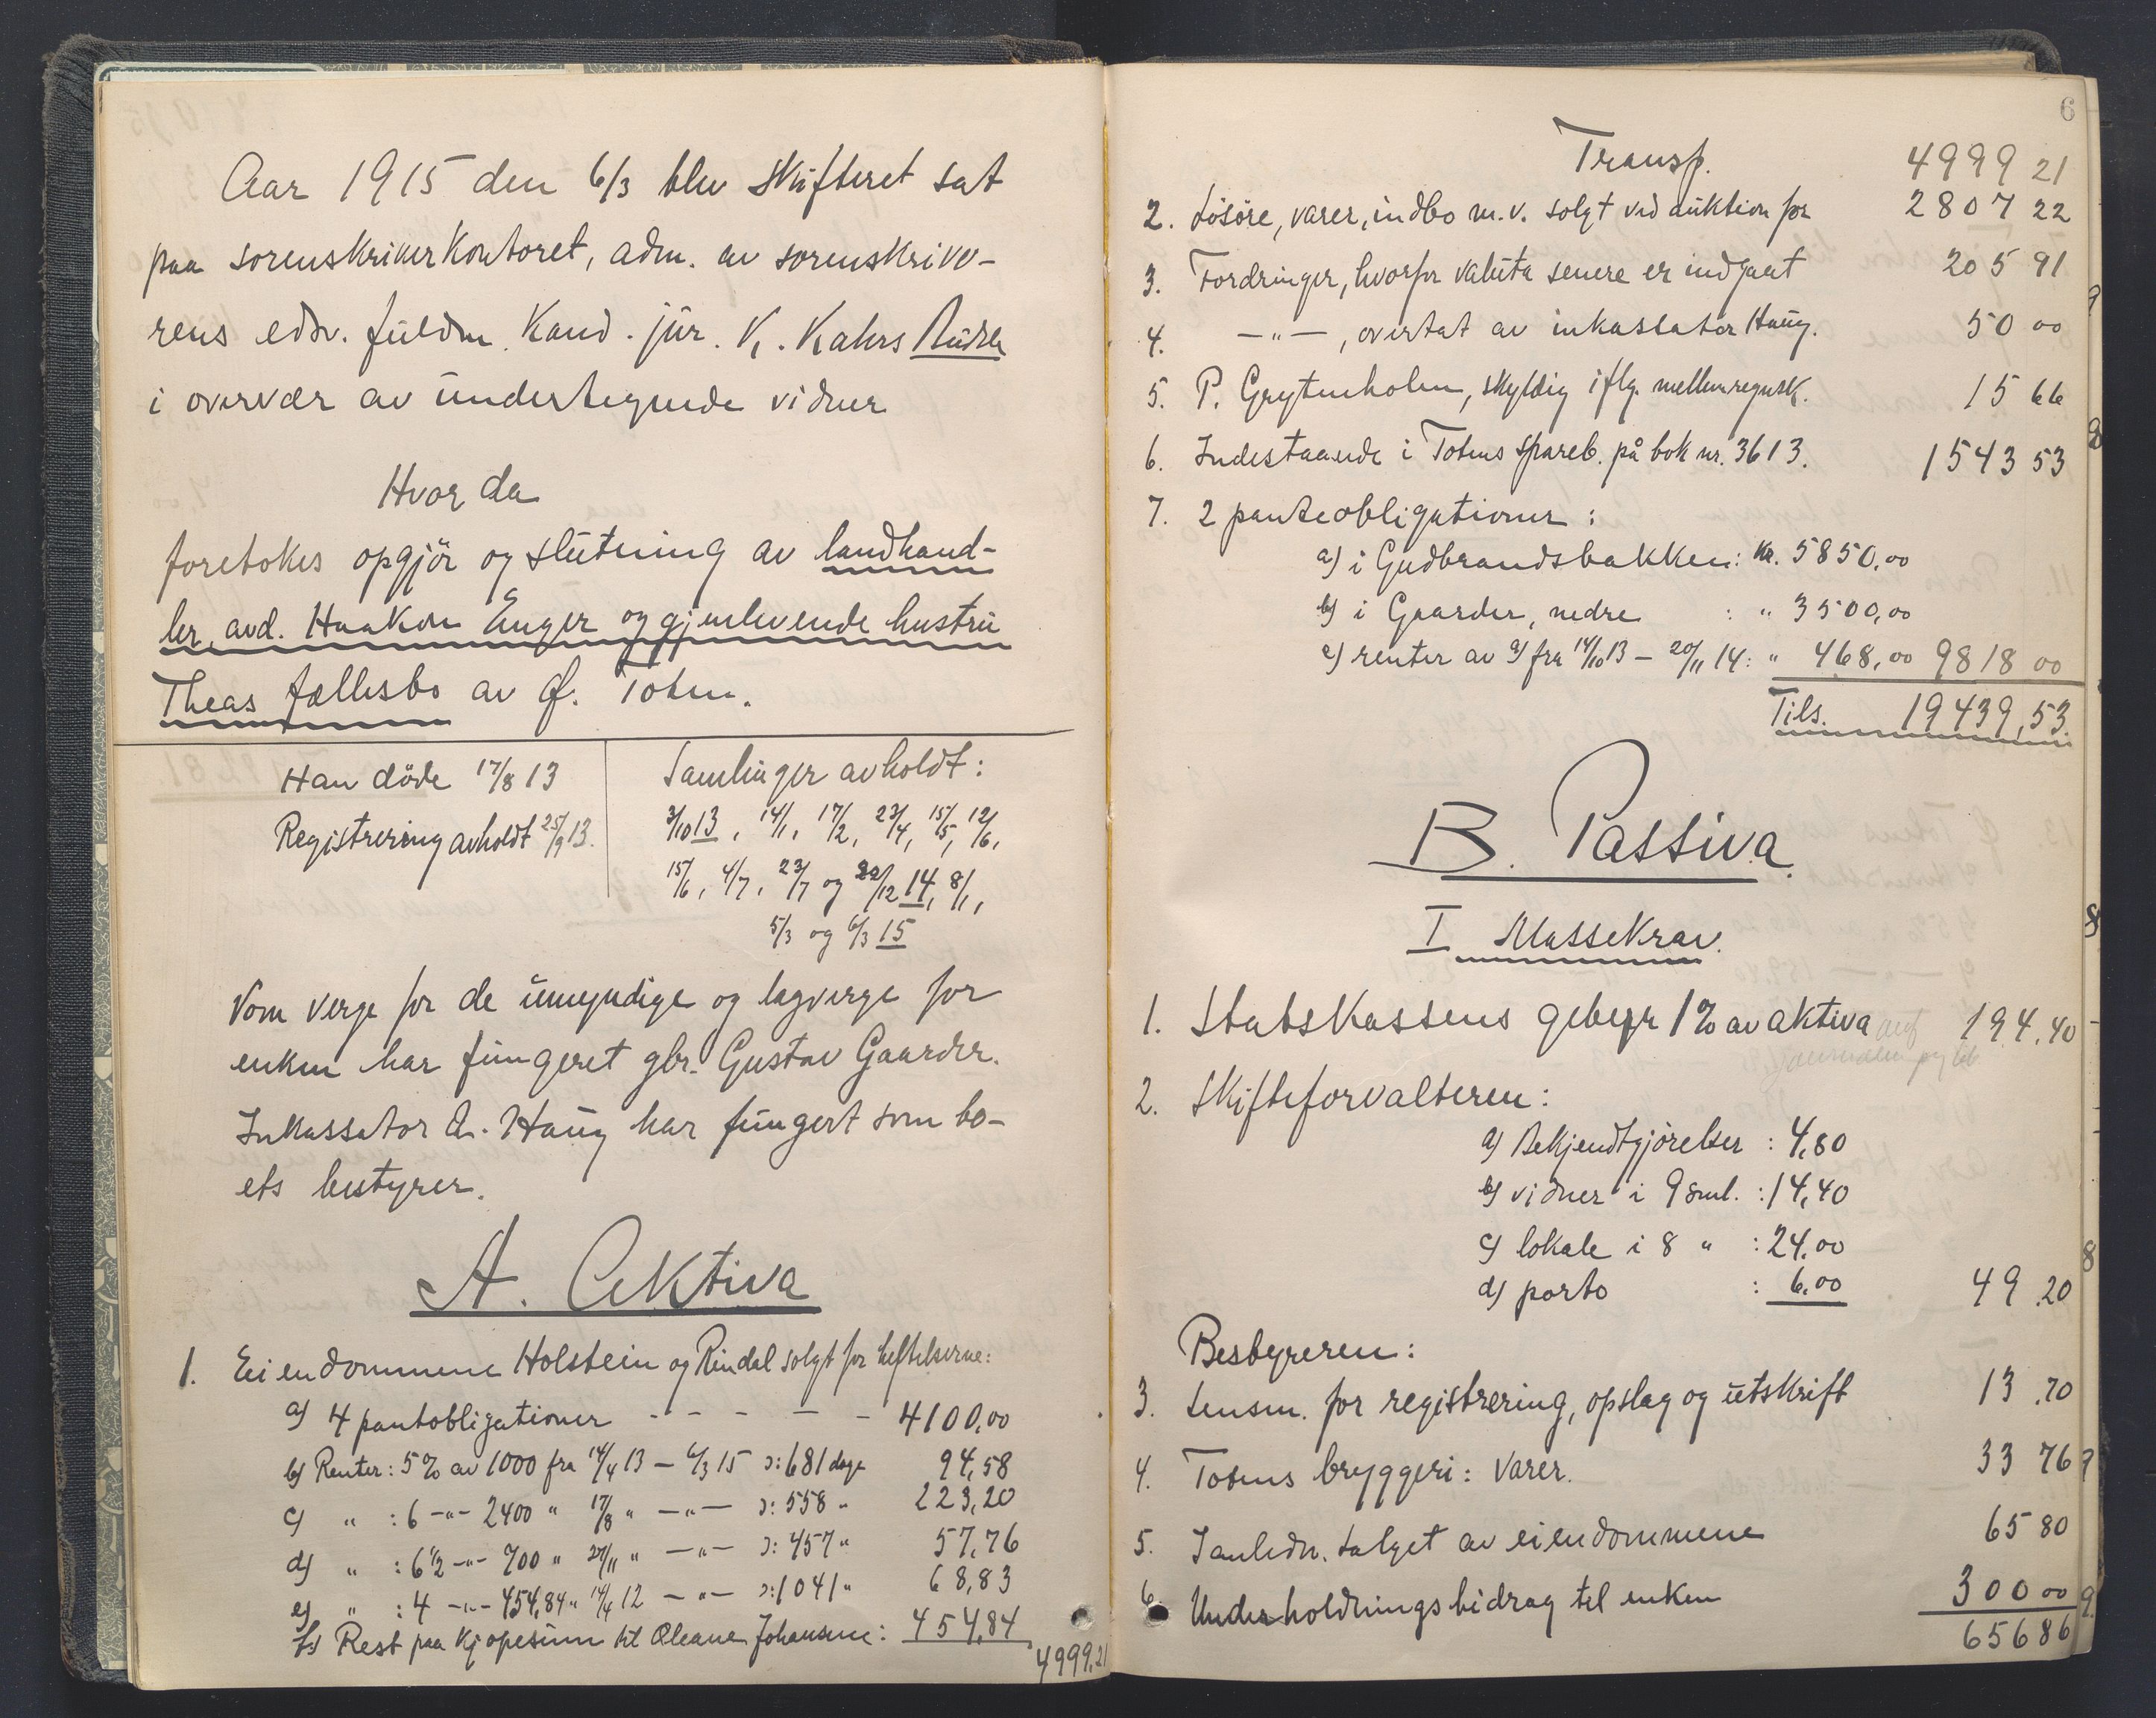 Aar 1915 den 6/3 blev skifteret sat
paa sorenskriverkontoret, adm. av sorenskrive-
rens edsv. fuldm. Kand. jur. K. Kahrs
i overvær av undertegnede vidner
Hvor da
foretokes opgjör og slutning av landhand-
ler, avd. Haakon Enger og gjenlevende hustru
Theas fællesbo av Ø. Toten.
Han döde 17/8 13
Registrering avholdt 25/9 13.
Samlinger avholdt:
3/10 13, 14/1, 17/2, 23/4, 15/5, 12/6,
15/6, 4/7, 23/7 og 22/12 14, 8/1,
5/3 og 6/3 15
Som verge for de umyndige og lagverge for
enken har fungeret gbr. Gustav Gaarder.
Inkassator A. Haug har fungert som bo-
ets bestyrer.
A. Aktiva
1. Eiendommene Holstein og Rindal solgt for heftelserne:
a) 4 pantobligationer - - - - - 4100,00
b) Renter: 5% av 1000 fra 14/4 13 - 6/3 15 ɔ: 681 dage 94,58
c) " : 6 -"- 2400 " 17/8 " -"- ɔ: 558 " 223,20
d) " : 6 1/2 -"- 700 " 27/11 " -"- ɔ: 457 " 57,76
e) " : 4 -"- 454,84 " 14/4 12 -"- ɔ: 1041 " 68,83
f) Rest paa kjøpesum til Oleane Johansen: 454,84
4999,21
6
Transp. 4999 21
2. Lösöre, varer, indbo m.v. solgt ved auktion for 2807 22
3. Fordringer, hvorfor valuta senere er indgaat 205 91
4. -"-, overtat av inkassator Haug. 50 00
5. P. Grytenholm, skyldig iflg. mellemregnsk. 15 66
6. Indestaaende i Totens spareb. på bok nr. 3613. 1543 53
7. 2 panteobligationer:
a) i Gudbrandsbakken: kr. 5850,00
b) i Gaarder, nedre : " 3500,00
c) renter av a) fra 14/10 13 - 20/11 14: " 468,00 9818 00
Tils. 19439,53
B. Passiva
I Massekrav.
1. Statskassens gebyr 1% av aktiva 194.40
2. Skifteforvalteren:
a) Bekjendtgjörelser : 4,80
b) vidner i 9 sml. : 14,40
c) lokale i 8 " : 24,00
d) porto : 6,00 49.20
Bestyreren:
3. Lensm. for registrering, opslag og utskrift 13.70
4. Totens bryggeri: varer. 33 76
5. I anledn. salget av eiendommene 65 80
6. Underholdningsbidrag til enken 300 00
656 86